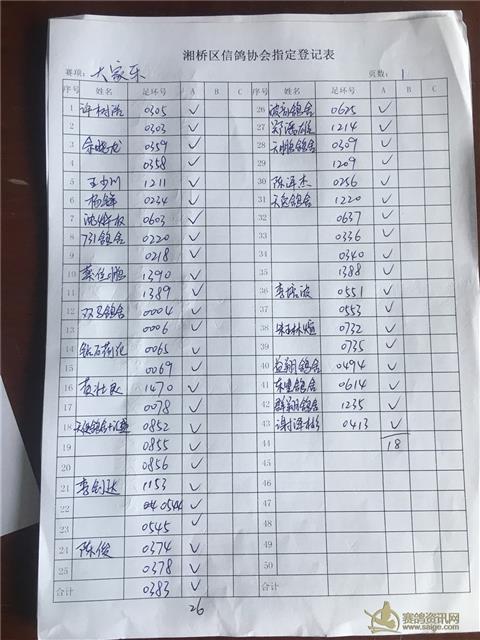 湘桥区信鸽协会指定登记表
赛项: 大家乐 页数: 1
序号 姓名 足环号 A B C 序号 姓名 足环号 A B C
1 许树浩 0305 ✓ 26 鸽舍 0625 ✓
2 0303 ✓ 27 郑 1214 ✓
3 余晓龙 0359 ✓ 28 天鹏鸽舍 0309 ✓
4 0358 ✓ 29 1209 ✓
5 王少川 1211 ✓ 30 陈泽杰 0256 ✓
6 杨 0234 ✓ 31 鸽舍 1220 ✓
7 沈 权 0603 ✓ 32 0637 ✓
8 731鸽舍 0220 ✓ 33 0336 ✓
9 0218 ✓ 34 0340 ✓
10 蔡 1390 ✓ 35 1388 ✓
11 1389 ✓ 36 李 波 0551 ✓
12 双号鸽舍 0004 ✓ 37 0553 ✓
13 0006 ✓ 38 林 0732 ✓
14 钻石荷花 0065 ✓ 39 0735 ✓
15 0069 ✓ 40 翔鸽舍 0494 ✓
16 黄壮良 1470 ✓ 41 鸽舍 0614 ✓
17 0078 ✓ 42 群翔鸽舍 1235 ✓
18 天使鸽舍 0852 ✓ 43 谢泽彬 0413 ✓
19 0855 ✓ 44 18
20 0856 ✓ 45
21 李剑达 1153 ✓ 46
22 0544 ✓ 47
23 0545 ✓ 48
24 陈俊 0374 ✓ 49
25 0378 ✓ 50
合计 0383 ✓ 合计
26
赛鸽资讯网
www.saige.com